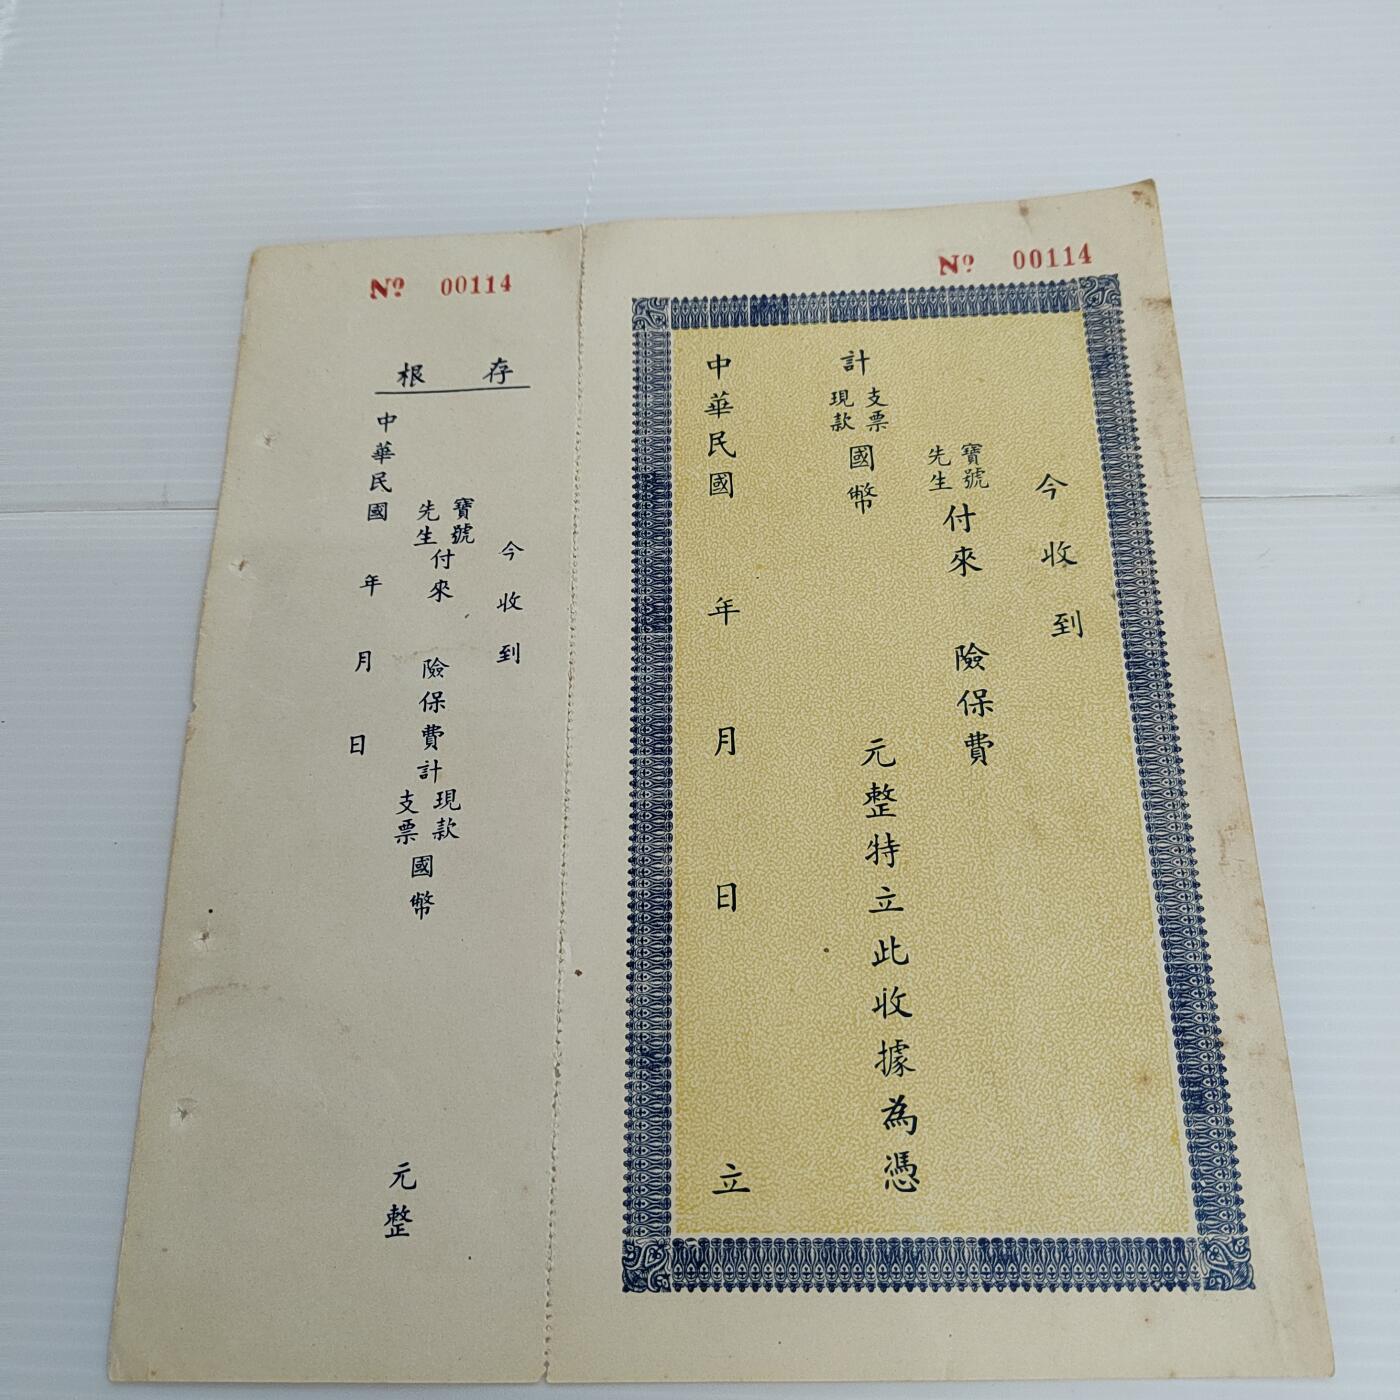 No 00114
今收到
寶號
先生
付來 險保費
計
支票
現款
國幣 元整特立此收據為憑
中華民國 年 月 日 立
No 00114
存根
今收到
寶號
先生
付來 險保費計
現款
支票
國幣 元整
中華民國 年 月 日